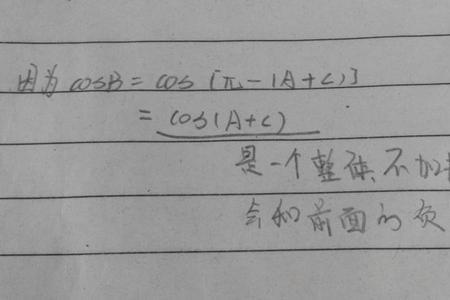 因为 cosB = cos [π-(A+C)]
= cos(A+C)
是一个整体 不加
会和前面的负